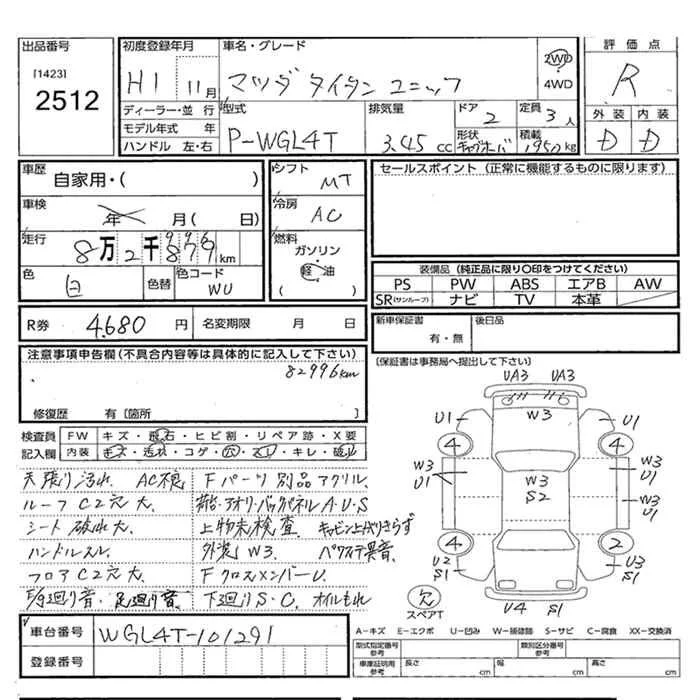 出品番号
[1423]
2512
初度登録年月
H1 11月
車名・グレード
マツダ タイタン ユニック
2WD
4WD
評価点
R
外装 内装
D D
ディーラー・並行
モデル年式 年
ハンドル 左・右
型式
P-WGL4T
排気量
3.45 cc
ドア
2
定員
3人
形状
キャブオーバ
積載
1950kg
車歴
自家用・( )
車検
年 月( 日)
走行
8万2千999km
色
白
色替
色コード
WU
シフト
MT
冷房
AC
燃料
ガソリン
軽油
( )
セールスポイント (正常に機能するものに限ります)
装備品 (純正品に限り○印をつけてください)
PS PW ABS エアB AW
SR(サンルーフ) ナビ TV 本革
R券 4,680 円 名変期限 月 日
新車保証書
有・無
後日品
(保証書は事務局へ提出して下さい)
注意事項申告欄(不具合内容等は具体的に記入して下さい)
82996km
修復歴 有〔箇所 〕
検査員
記入欄
FW キズ・飛石・ヒビ割・リペア跡・X要
内装 キズ・汚れ・コゲ・穴・スレ・キレ・破れ
天張り汚れ AC不良 Fパーツ別品アクリル
ルーフC2穴大 荷台・アオリ・バックパネルA・U・S
シート破れ大 上物未検査 キャビン上がりきらず
ハンドルスレ 外装W3 ペクスイテ異音
フロアC2穴大 FクロスメンバーU
足廻り音 下廻りS・C オイルもれ
車台番号
WGL4T-101291
登録番号
UA3 UA3
W3
U1 U1
4 4
W3 U1
W3 S2
W3 U1
4 2
U2 S1
U3 S1
U4 S1
欠
スペアT
A-キズ E-エクボ U-凹み W-補修跡 S-サビ C-腐食 XX-交換済
型式指定番号 参考
類別区分番号 参考
車庫証明用 参考
長さ cm
幅 cm
高さ cm